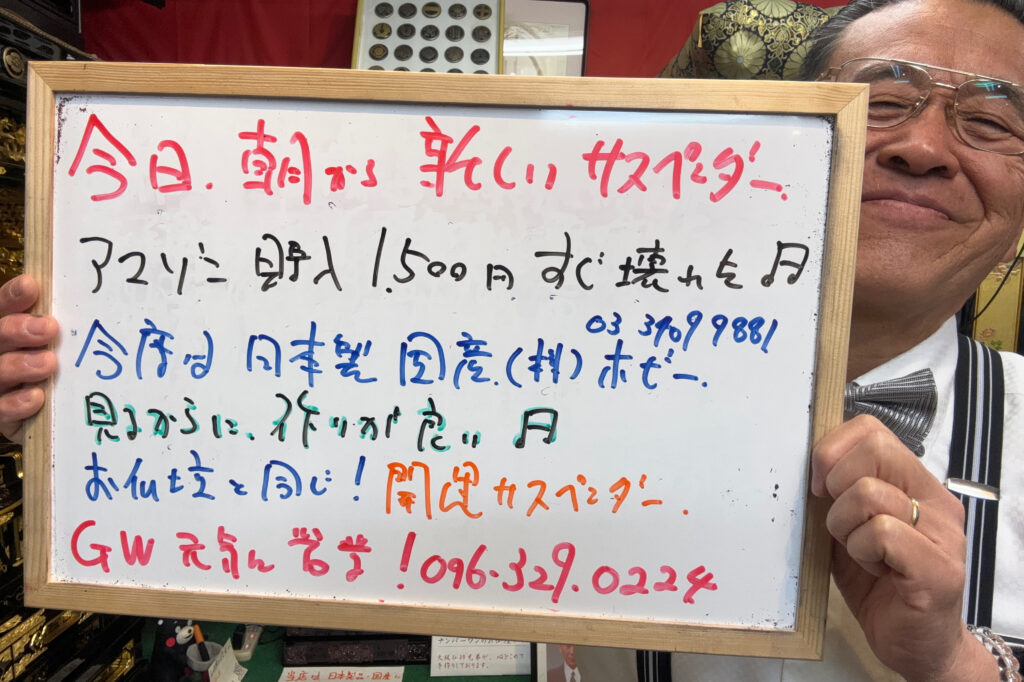 今日.朝から 新しい サスペンダー.
アマゾン 購入 1.500円 すぐ壊れた
03 3909 9881
今度は 日本製 国産.(株) ホビー.
見るからに、作りが良い
お仏壇と同じ! 開運サスペンダー.
GW 元気に営業! 096.329.0224
ナンバーワンの
当店は 日本製品・国産に